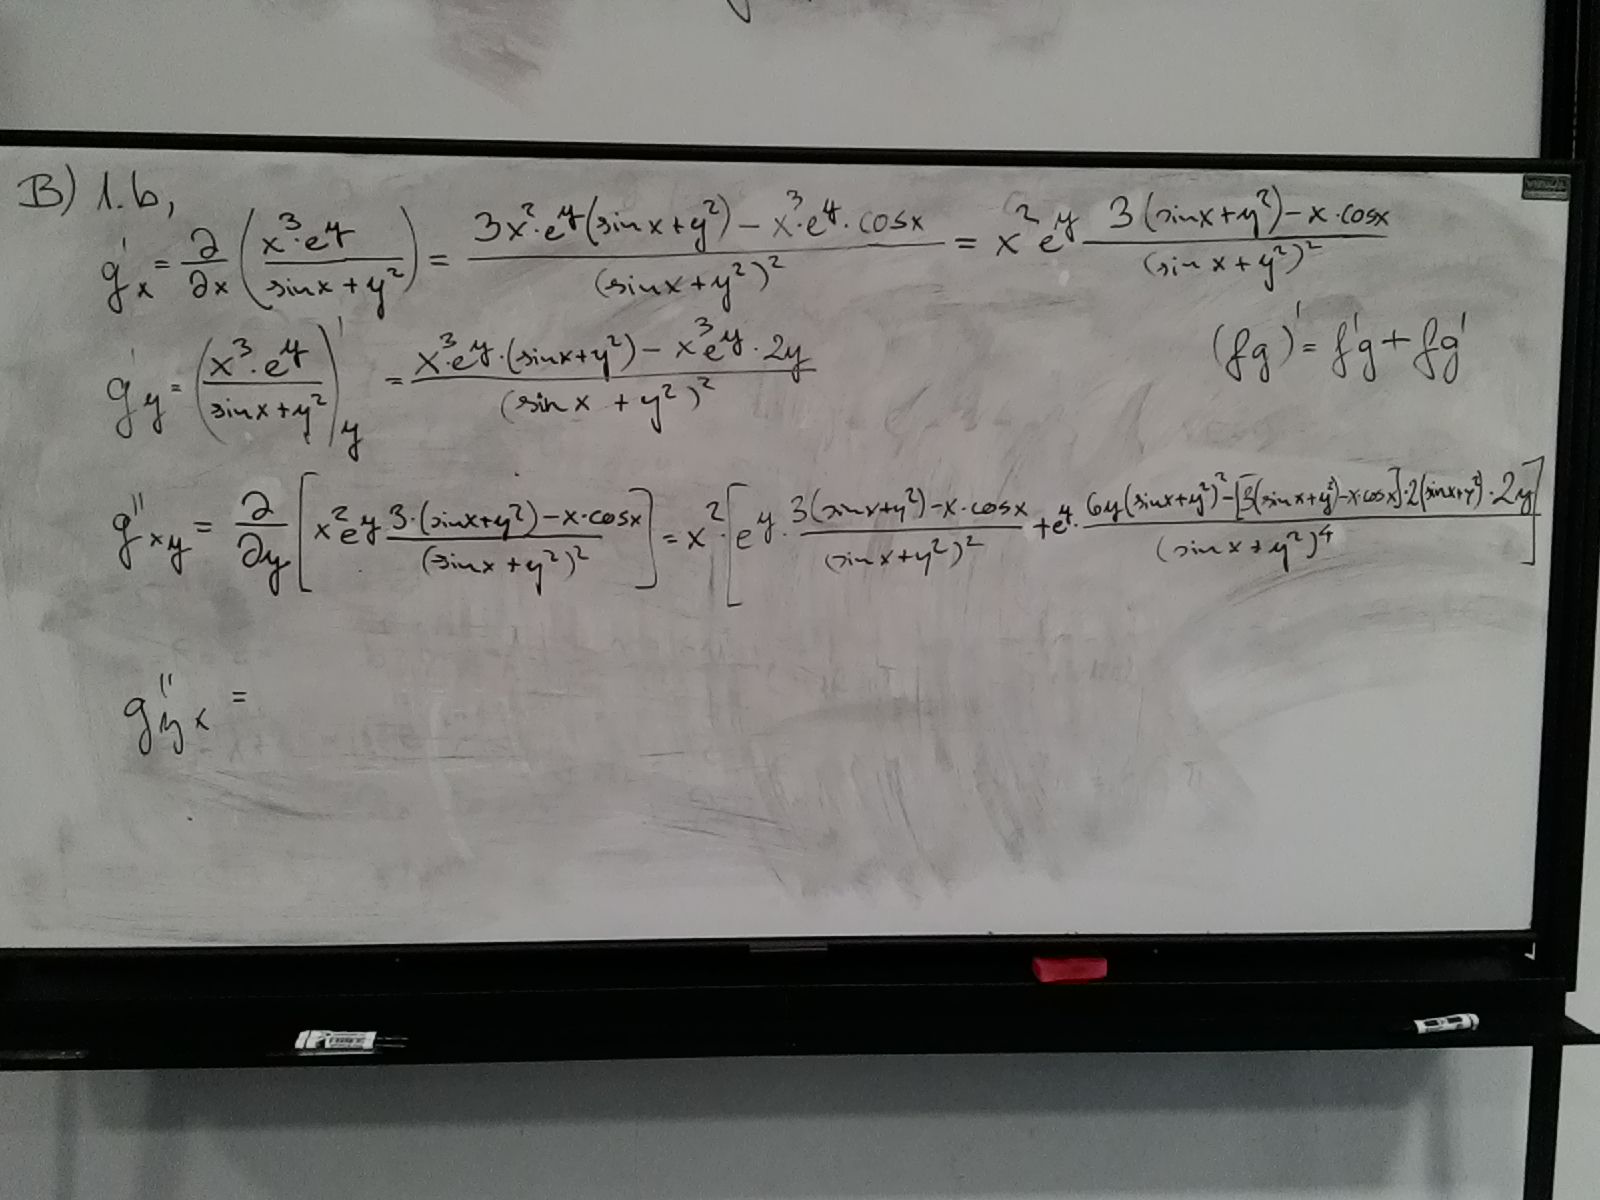 B) 1.b,
g'x = ∂/∂x (x³·e^y / (sinx + y²)) = (3x²·e^y(sinx+y²) − x³·e^y·cosx) / (sinx+y²)² = x²e^y (3(sinx+y²) − x·cosx) / (sinx+y²)²
g'y = (x³·e^y / (sinx+y²))'y = (x³·e^y·(sinx+y²) − x³e^y·2y) / (sinx + y²)²
(fg)' = f'g + fg'
g''xy = ∂/∂y [x²e^y (3·(sinx+y²) − x·cosx) / (sinx+y²)²] = x²·[e^y·(3(sinx+y²) − x·cosx) / (sinx+y²)² + e^y·(6y(sinx+y²)² − [3(sinx+y²) − x·cosx]·2(sinx+y²)·2y) / (sinx+y²)⁴]
g''yx =